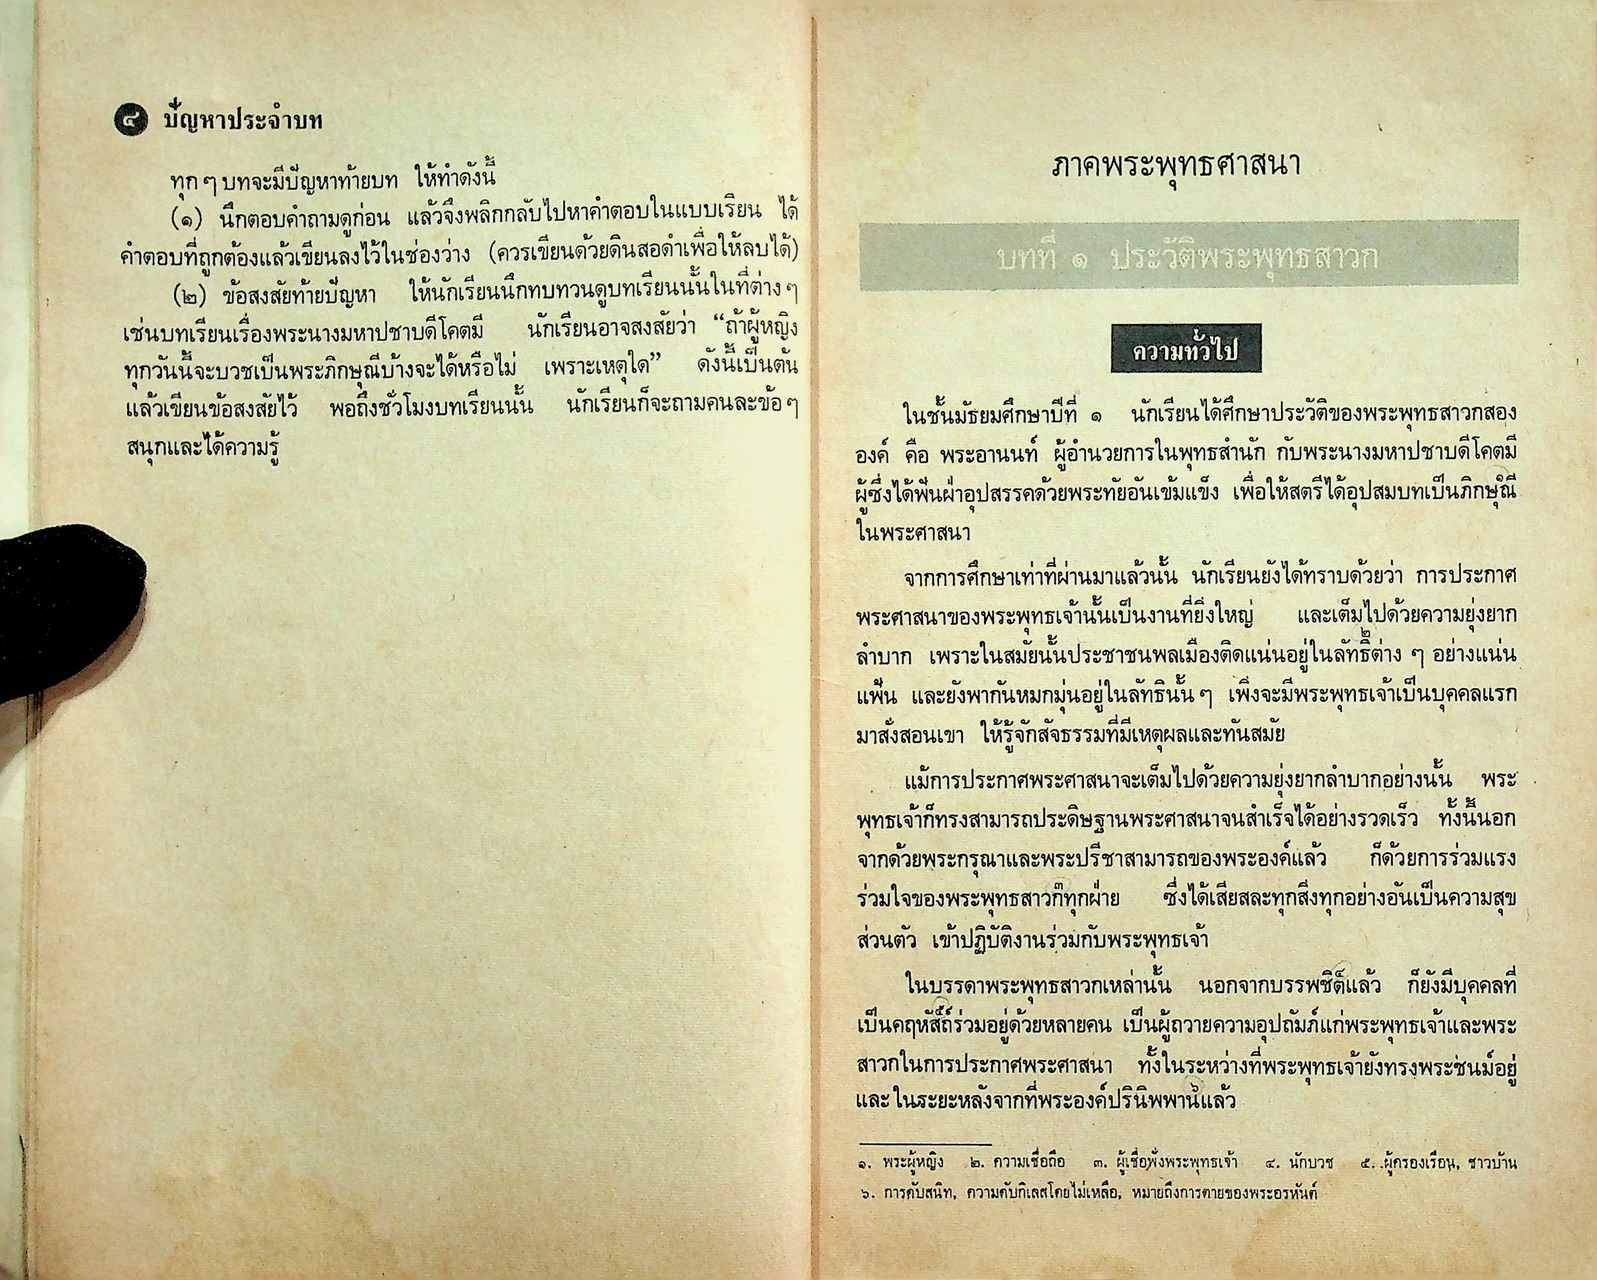 ๔ ปัญหาประจำบท
ทุก ๆ บทจะมีปัญหาท้ายบท ให้ทำดังนี้
(๑) นึกตอบคำถามดูก่อน แล้วจึงพลิกกลับไปหาคำตอบในแบบเรียน ได้
คำตอบที่ถูกต้องแล้วเขียนลงไว้ในช่องว่าง (ควรเขียนด้วยดินสอดำเพื่อให้ลบได้)
(๒) ข้อสงสัยท้ายปัญหา ให้นักเรียนนึกทบทวนดูบทเรียนนั้นในที่ต่าง ๆ
เช่นบทเรียนเรื่องพระนางมหาปชาบดีโคตมี นักเรียนอาจสงสัยว่า “ถ้าผู้หญิง
ทุกวันนี้จะบวชเป็นพระภิกษุณีบ้างจะได้หรือไม่ เพราะเหตุใด” ดังนี้เป็นต้น
แล้วเขียนข้อสงสัยไว้ พอถึงชั่วโมงบทเรียนนั้น นักเรียนก็จะถามคนละข้อ ๆ
สนุกและได้ความรู้
ภาคพระพุทธศาสนา
บทที่ ๑ ประวัติพระพุทธสาวก
ความทั่วไป
ในชั้นมัธยมศึกษาปีที่ ๑ นักเรียนได้ศึกษาประวัติของพระพุทธสาวกสอง
องค์ คือ พระอานนท์ ผู้อำนวยการในพุทธสำนัก กับพระนางมหาปชาบดีโคตมี
ผู้ซึ่งได้ฟันฝ่าอุปสรรคด้วยพระทัยอันเข้มแข็ง เพื่อให้สตรีได้อุปสมบทเป็นภิกษุณี๑
ในพระศาสนา
จากการศึกษาเท่าที่ผ่านมาแล้วนั้น นักเรียนยังได้ทราบด้วยว่า การประกาศ
พระศาสนาของพระพุทธเจ้านั้นเป็นงานที่ยิ่งใหญ่ และเต็มไปด้วยความยุ่งยาก
ลำบาก เพราะในสมัยนั้นประชาชนพลเมืองติดแน่นอยู่ในลัทธิ๒ต่าง ๆ อย่างแน่น
แฟ้น และยังพากันหมกมุ่นอยู่ในลัทธินั้น ๆ เพิ่งจะมีพระพุทธเจ้าเป็นบุคคลแรก
มาสั่งสอนเขา ให้รู้จักสัจธรรมที่มีเหตุผลและทันสมัย
แม้การประกาศพระศาสนาจะเต็มไปด้วยความยุ่งยากลำบากอย่างนั้น พระ
พุทธเจ้าก็ทรงสามารถประดิษฐานพระศาสนาจนสำเร็จได้อย่างรวดเร็ว ทั้งนี้นอก
จากด้วยพระกรุณาและพระปรีชาสามารถของพระองค์แล้ว ก็ด้วยการร่วมแรง
ร่วมใจของพระพุทธสาวก๓ทุกฝ่าย ซึ่งได้เสียสละทุกสิ่งทุกอย่างอันเป็นความสุข
ส่วนตัว เข้าปฏิบัติงานร่วมกับพระพุทธเจ้า
ในบรรดาพระพุทธสาวกเหล่านั้น นอกจากบรรพชิต๔แล้ว ก็ยังมีบุคคลที่
เป็นคฤหัสถ์๕ร่วมอยู่ด้วยหลายคน เป็นผู้ถวายความอุปถัมภ์แก่พระพุทธเจ้าและพระ
สาวกในการประกาศพระศาสนา ทั้งในระหว่างที่พระพุทธเจ้ายังทรงพระชนม์อยู่
และในระยะหลังจากที่พระองค์ปรินิพพาน๖แล้ว
๑. พระผู้หญิง ๒. ความเชื่อถือ ๓. ผู้เชื่อฟังพระพุทธเจ้า ๔. นักบวช ๕. ผู้ครองเรือน, ชาวบ้าน
๖. การดับสนิท, ความดับกิเลสโดยไม่เหลือ, หมายถึงการตายของพระอรหันต์